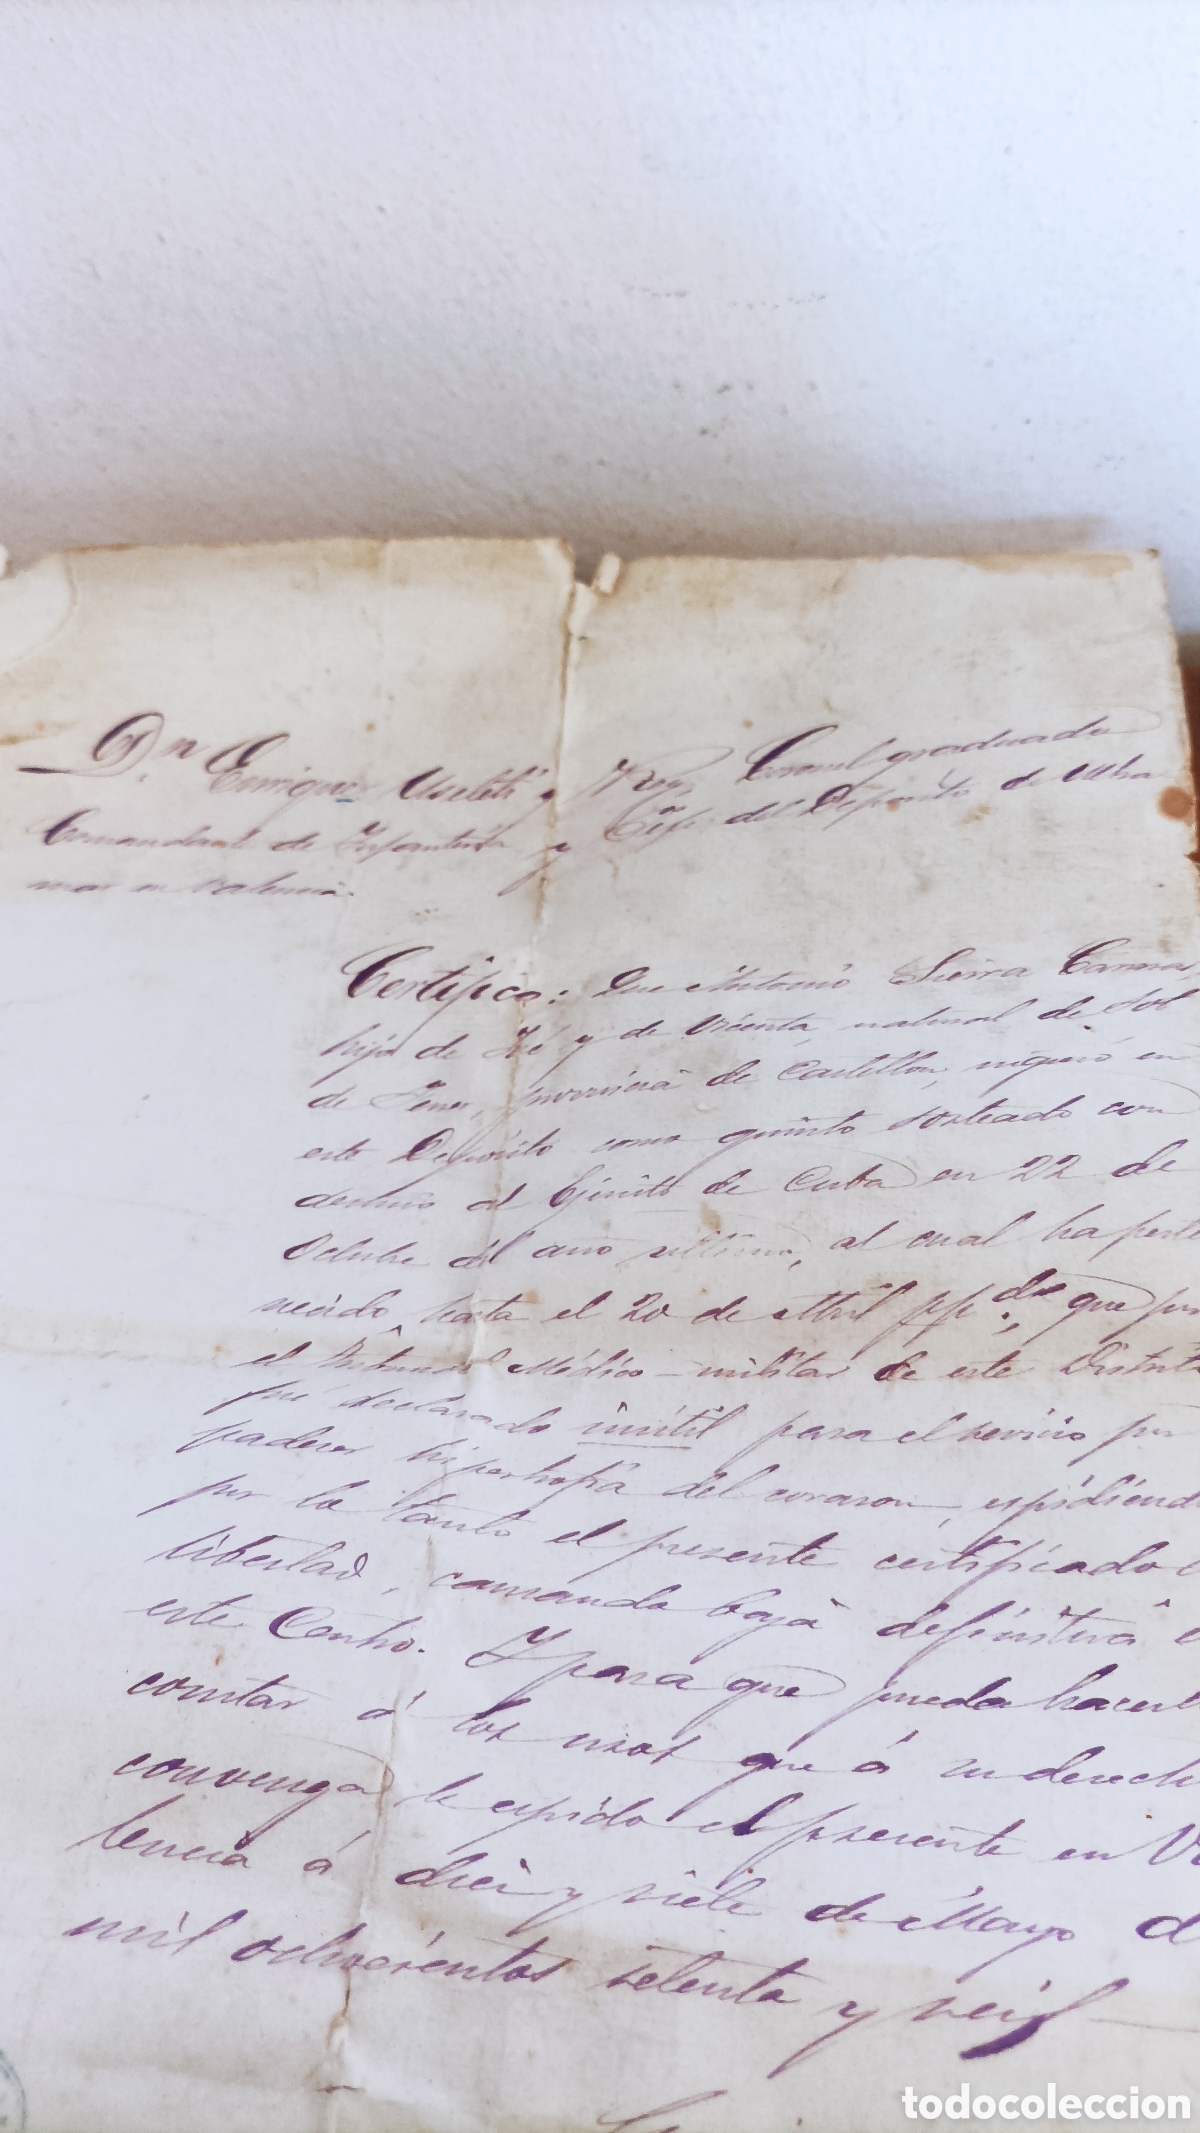 Dn Enrique y Rey, Coronel graduado
Comandante de Infanteria y Gefe del Depósito de Ultra
mar en Valencia.
Certifico: Que Antonio Sierra
hijo de Jé y de Vicenta, natural de Sot
de Ferrer, provincia de Castellon, ingresó en
este Depósito como quinto sorteado con
destino al Ejército de Cuba en 22 de
Octubre del año último, al cual ha perte
necido hasta el 20 de Abril pp.do, que por
el Tribunal Médico-militar de este Distrito
fué declarado inútil para el servicio por
padecer hipertrofia del corazon, espidiendo
por lo tanto el presente certificado
libertad, causando baja definitiva e
este Centro. Y para que pueda hacerlo
constar á los usos que á su derech
convenga le espido el presente en Va
lencia á diez y siete de Mayo d
mil ochocientos setenta y seis
todocoleccion